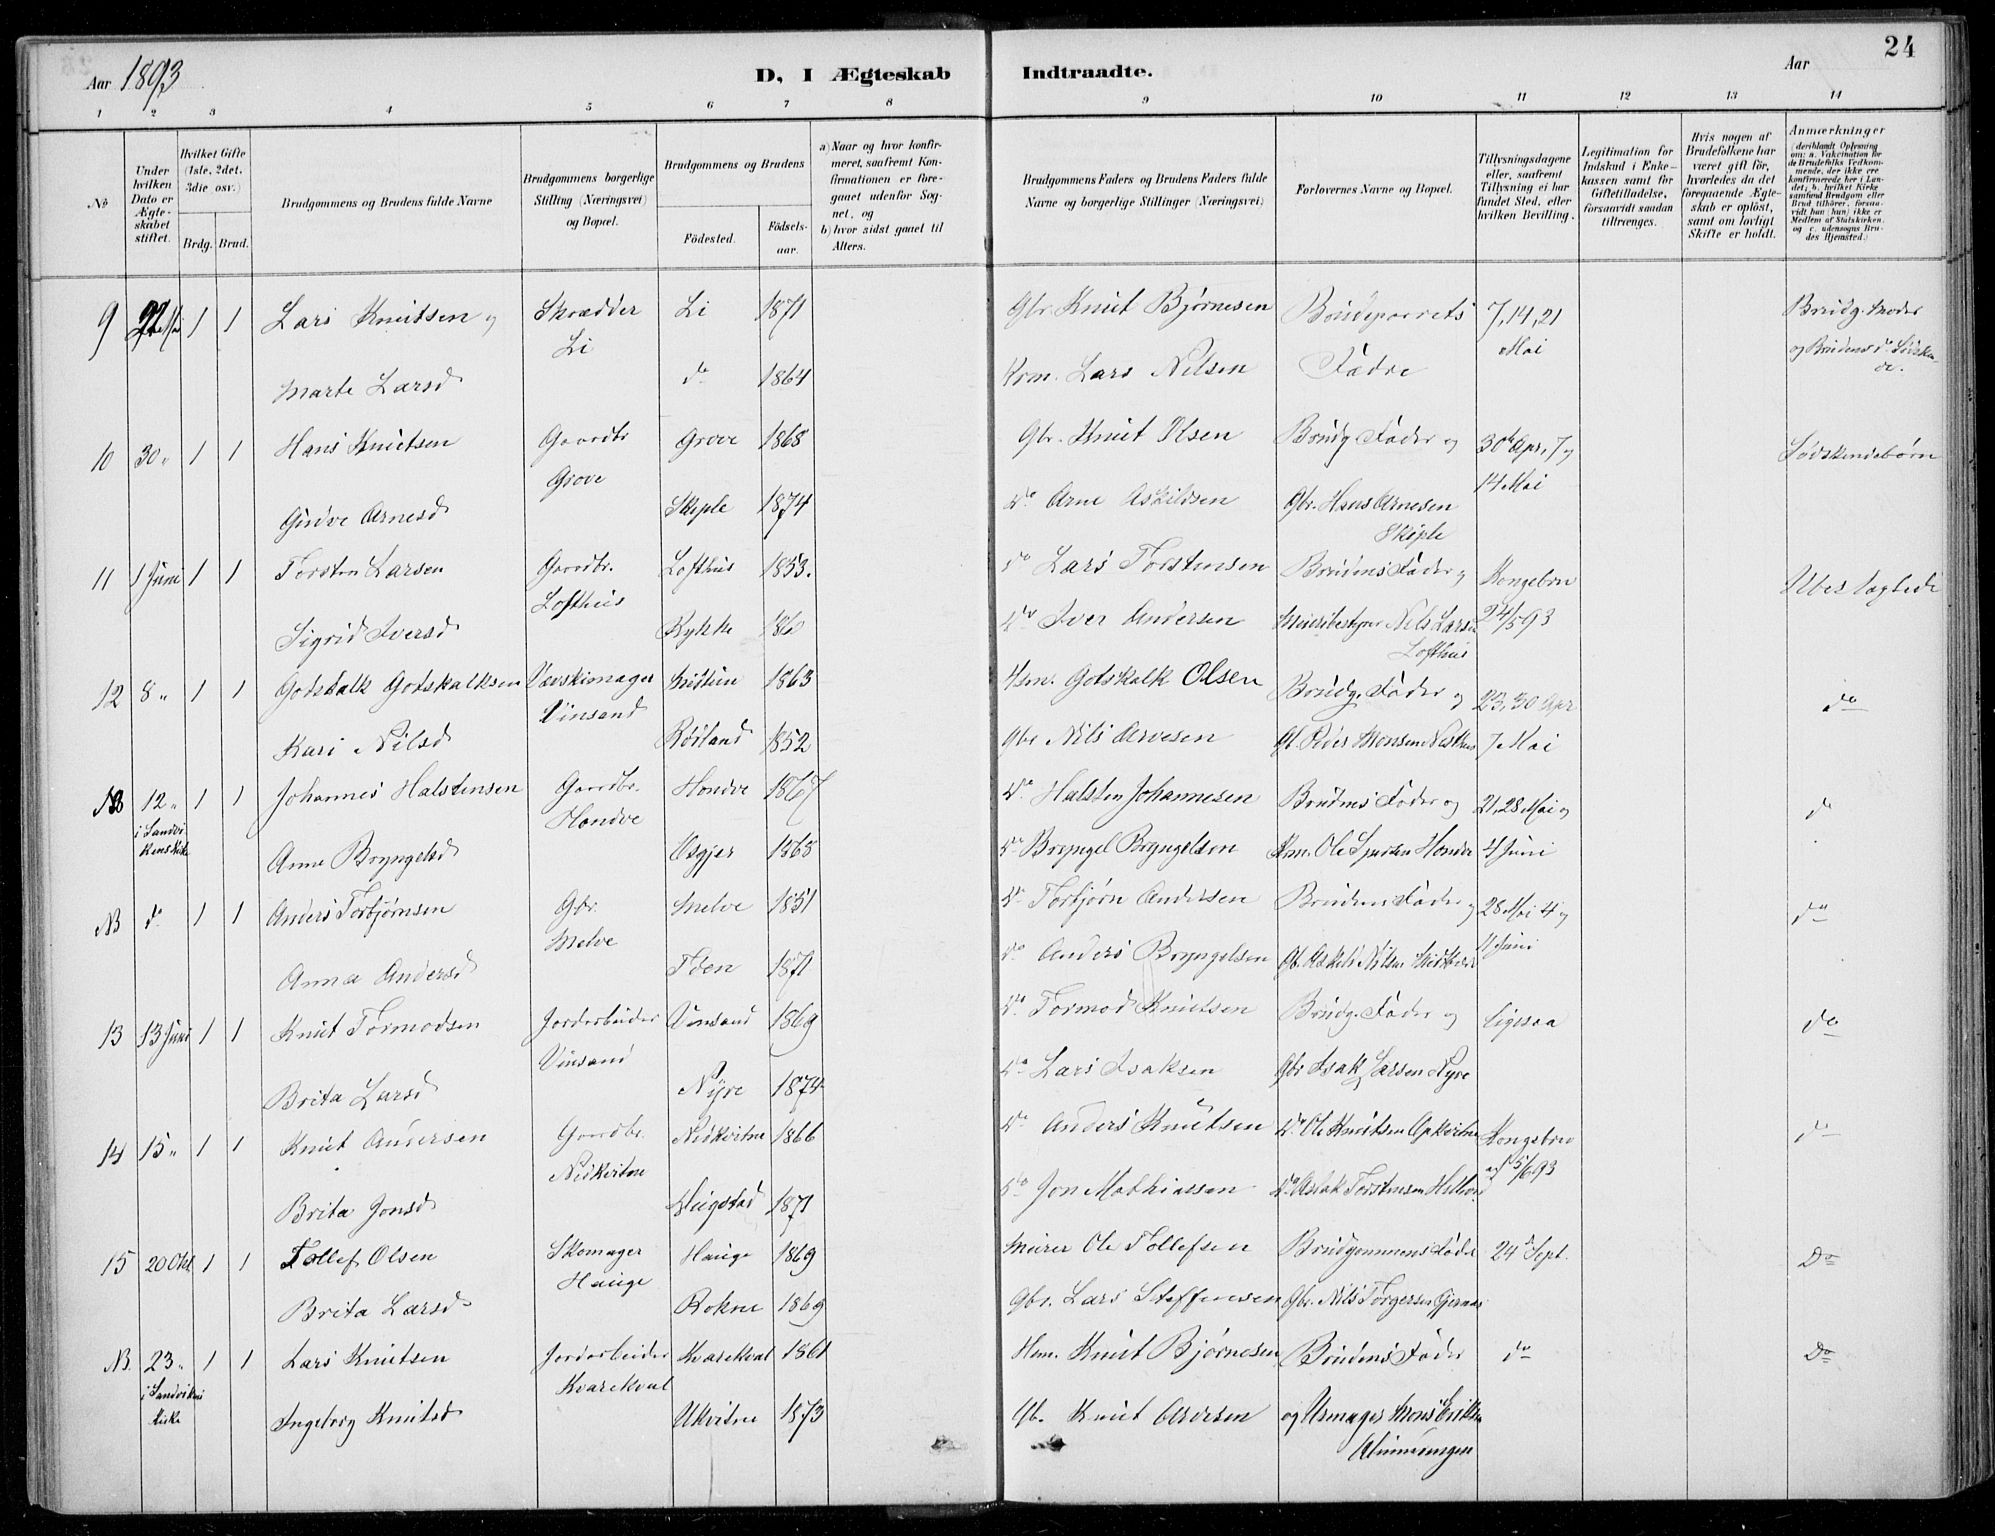 Aar 1893
D, I Ægteskab Indtraadte.
Aar
24
1 2 3 4 5 6 7 8 9 10 11 12 13 14
No
Under hvilken Dato er Ægteskabet stiftet.
Hvilket Gifte (1ste, 2det, 3die osv.)
Brdg. Brud.
Brudgommens og Brudens fulde Navne
Brudgommens borgerlige Stilling (Næringsvei) og Bopæl.
Brudgommens og Brudens
Fødested.
Fødselsaar.
a) Naar og hvor konfirmeret, saafremt Konfirmationen er foregaaet udenfor Sognet, og
b) hvor sidst gaaet til Alters.
Brudgommens Faders og Brudens Faders fulde Navne og borgerlige Stillinger (Næringsvei)
Forlovernes Navne og Bopæl.
Tillysningsdagene eller, saafremt Tillysning ei har fundet Sted, efter hvilken Bevilling.
Legitimation for Indskud i Enkekassen samt for Giftetilladelse, forsaavidt saadan tiltrænges.
Hvis nogen af Brudefolkene har været gift før, hvorledes da det foregaaende Ægteskab er opløst, samt om lovligt Skifte er holdt.
Anmærkninger (deriblandt Oplysning om: a. Vakcination for de Brudefolks Vedkommende, der ikke ere konfirmerede her i Landet; b. hvilket Kirkesamfund Brudgom eller Brud tilhører, forsaavidt han (hun) ikke er Medlem af Statskirken, og c. udensogns Brudes Hjemsted.)
9 Mai 1 1 Lars Knutsen og Skrædder Li 1871 Gbr. Knut Bjørnesen Brudeparrets 7, 14, 21 Brudg. Moder
Li Mai og Brudens do Sødskende.
Marte Larsd do 1864 Lars Nilsen Fædre
10 30 " 1 1 Hans Knutsen Gaardbr. Grove 1868 Gbr. Knut Olsen Brudg. Fader og 30te Apr, 7 og Sødskendebørn
Grove 14 Mai
Gudve Arnesd Skiple 1874 do Arne Askildsen Gbr. Hans Arnesen
Skiple
11 1 Juni 1 1 Torsten Larsen Gaardbr. Lofthus 1853. do Lars Torstensen Brudens Fader og Kongebrev Ubeslægtede
Lofthus
Sigrid Iversd Rykke do Iver Andersen Nils Larsen 24/5 93
Lofthus
12 8 " 1 1 Godskalk Godskalksen 1863 Hsm. Godskalk Olsen Brudg. Fader og 23, 30 Apr do
Vinsand
Kari Nilsd Røtland 1852 Gbr Nils Arvesen Gb. Peder Monsen 7 Mai
NB 12 " 1 1 Johannes Halstensen Gaardbr. Hondve 1867 do Halsten Johannesen Brudens Fader og 21, 28 Mai og do
i Sandvikens Kirke Hondve
Anna Bryngelsd 1865 do Bryngel Bryngelsen 4 Juni
NB do 1 1 Anders Torbjørnsen Gbr. Melve 1851 do Torbjørn Andersen Brudens Fader og 28 Mai 4 og do
Melve
Anna Andersd Tøen 1871 do Anders Bryngelsen Juni
13 13 Juni 1 1 Knut Tormodsen Jordarbeider Vinsand 1869 do Tormod Knutsen Brudg. Fader og ligesaa do
Vinsand
Brita Larsd Nyre 1874 do Lars Isaksen Gbr Isak Larsen Nyre
14 15 " 1 1 Knut Andersen Gaardbr. Nedkvitne 1866 do Anders Knutsen do Ole Knutsen Opkvitne Kongebrev do
Nedkvitne
Brita Jonsd 1871 do Jon Mathiassen do Aslak Torstensen af 5/6 93
15 20 Okt 1 1 Tollef Olsen Skomager Hauge 1869 Murer Ole Tollefsen Brudgommens Fader 24de Sept. do
Hauge
Brita Larsd Rokne 1869 Gbr. Lars Steffensen Gbr. Nils Torgersen Gjernæs
NB 23 " 1 1 Lars Knutsen Jordarbeider Kvarekval 1861 Hsm. Knut Bjørnesen Brudens Fader do do
i Sandvikens Kirke Kvarekval
Ingeborg Knutsd Ukvitne 1873 Gb. Knut Arvesen og Urmager Mons Eriksen